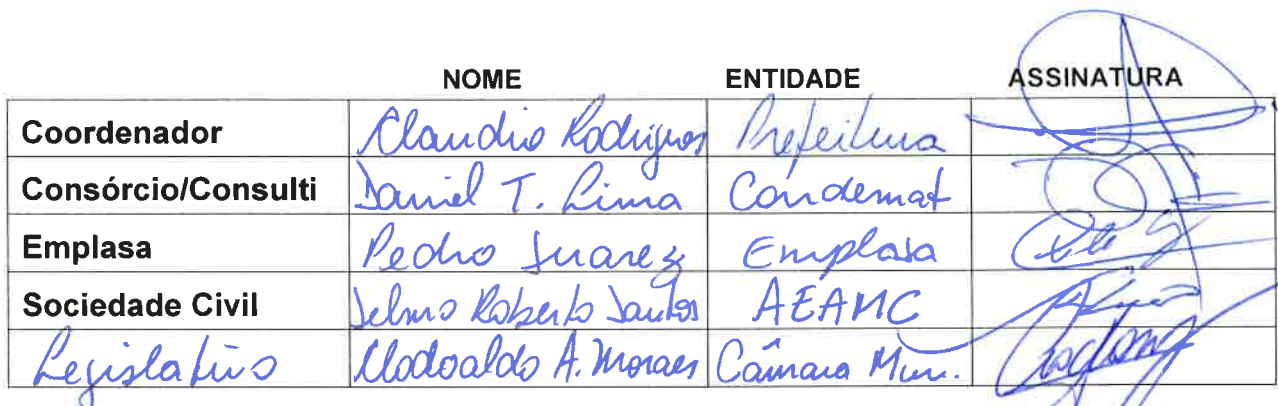 NOME ENTIDADE ASSINATURA
Coordenador Claudio Rodrigues Prefeitura
Consórcio/Consulti Daniel T. Lima Condemat
Emplasa Pedro Suarez Emplasa
Sociedade Civil Selmo Roberto Santos AEAMC
Legislativo Clodoaldo A. Moraes Câmara Mun.